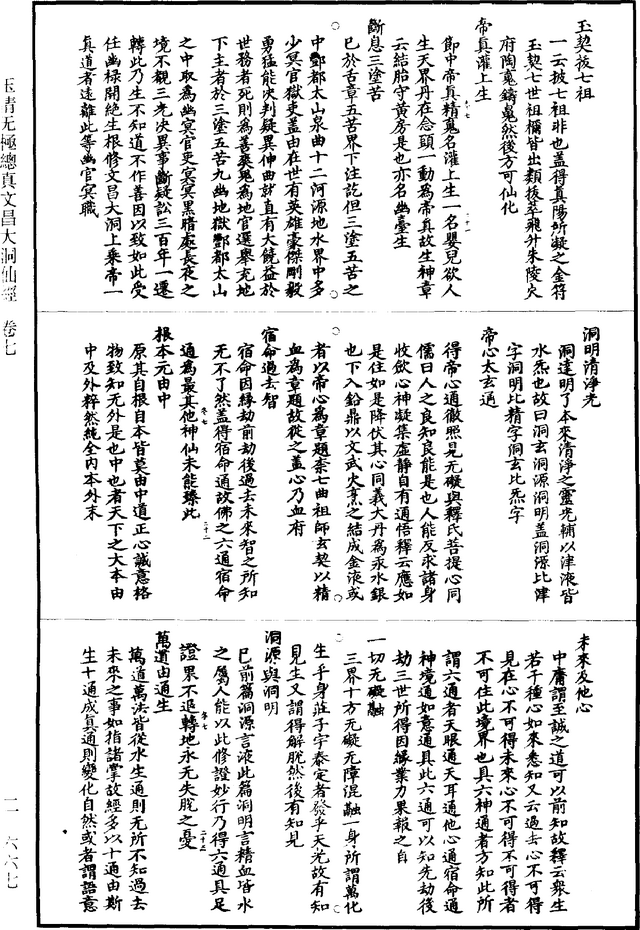 玉契拔七祖
一云披七祖非也蓋得真陽所凝之金符
玉契七世祖禰皆出類拔萃飛升朱陵火
府陶寃鑄鬼然後方可仙化
帝真灌上生
節中帝真精鬼名灌上生一名嬰兒欲人
生天界丹在念頭一動為帝真故生神章
云結胎守黃房是也亦名幽臺生
斷息三塗苦
已於古章五苦界下注訖但三塗五苦之
中酆都太山泉曲十二河源地水界中多
少冥官獄吏蓋由在世有英雄豪傑剛毅
勇猛能決判疑異伸曲就直有大饒益於
世務者死則為善爽鬼為地官選舉充地
下主者於三塗五苦九幽地獄酆都太山
之中取為幽冥官吏冥冥黑暗處長夜之
境不覩三光次異事斷疑訟三百年一遷
轉此乃生不知道不作善因以致如此受
任幽樑開絶生根修文昌大洞上乘帝一
真道者遠離此等幽官冥職
洞明清淨光
洞達明了本來清淨之靈光輔以津液皆
水炁也故曰洞玄洞源洞明蓋洞源比津
字洞明比精字洞玄比炁字
帝心太玄通
得帝心通徹照見无礙與釋氏菩提心同
儒曰人之良知良能是也人能反求諸身
收歛心神凝集虛靜自有通悟釋云應如
是住如是降伏其心同義大丹為汞水銀
也下入鉛鼎以文武火烹之結成金液或
者以帝心為章題柰七曲祖師玄契以精
血為章題故從之蓋心乃血府
宿命過去智
宿命因緣劫前劫後過去未來智之所知
无不了然蓋得宿命通故佛之六通宿命
通為最其他神仙未能臻此
根本元由中
原其自根自本皆莫由中道正心誠意格
物致知无外是也中也者天下之大本由
中及外粹然純全内本外末
未來及他心
中庸謂至誠之道可以前知故釋云衆生
若干種心如來悉知又云過去心不可得
見在心不可得未來心不可得不可得者
不可住此境界也具六神通者方知此所
謂六通者天眼通天耳通他心通宿命通
神境通如意通具此六通可以知先劫後
劫三世所得因緣業力果報之自
一切无礙融
三界十方无礙无障混融一身所謂萬化
生乎身莊子宇泰定者發乎天光故有知
見生又謂得解脫然後有知見
洞源與洞明
已前篇洞源言液此篇洞明言精血皆水
之屬人能以此修證妙行乃得六通具足
證果不退轉地永无失脫之憂
萬道由通生
萬道萬法皆從水生通則无所不知過去
未來之事如指諸掌故經多以十通由斯
生十通成真通則變化自然或者謂語意
玉清无極總真文昌大洞仙經 卷七
二一六六七